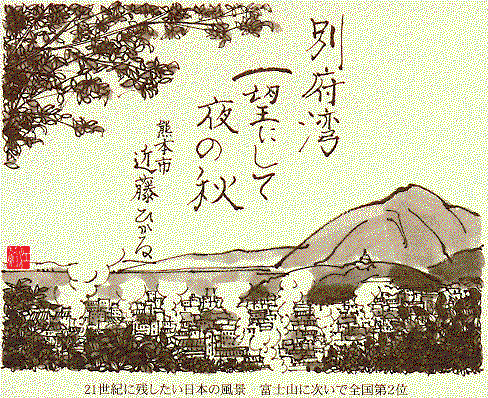 別府湾
一望にして
夜の秋
熊本市
近藤ひかる
21世紀に残したい日本の風景　富士山に次いで全国第2位